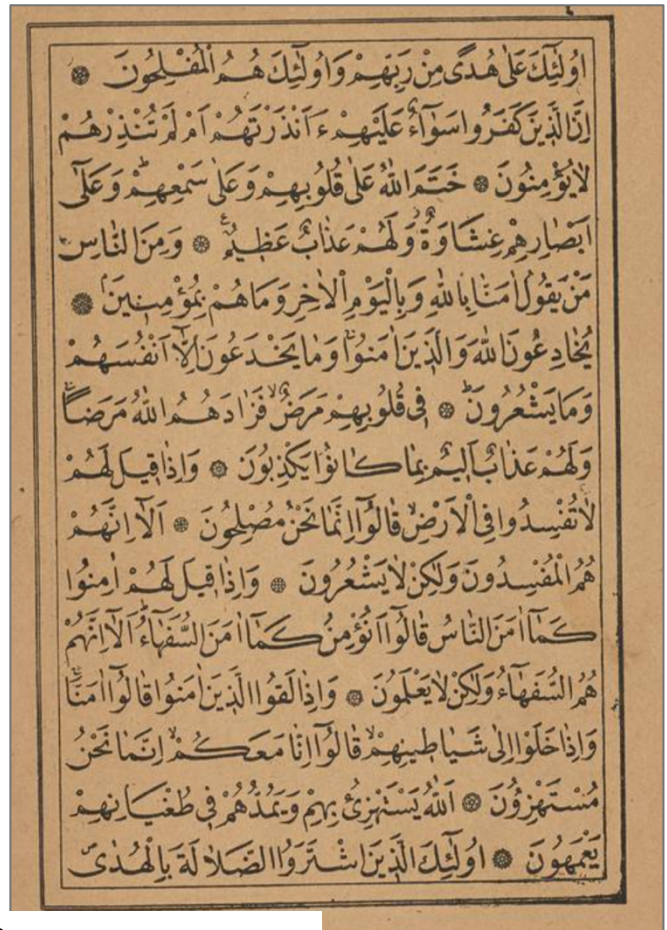 اُولٰٓئِكَ عَلٰى هُدًى مِنْ رَبِّهِمْ وَاُولٰٓئِكَ هُمُ الْمُفْلِحُونَ ۞
اِنَّ الَّذٖينَ كَفَرُوا سَوَٓاءٌ عَلَيْهِمْ ءَاَنْذَرْتَهُمْ اَمْ لَمْ تُنْذِرْهُمْ
لَا يُؤْمِنُونَ ۞ خَتَمَ اللّٰهُ عَلٰى قُلُوبِهِمْ وَعَلٰى سَمْعِهِمْ وَعَلٰٓى
اَبْصَارِهِمْ غِشَاوَةٌ وَلَهُمْ عَذَابٌ عَظٖيمٌ ۞ وَمِنَ النَّاسِ
مَنْ يَقُولُ اٰمَنَّا بِاللّٰهِ وَبِالْيَوْمِ الْاٰخِرِ وَمَا هُمْ بِمُؤْمِنٖينَ ۞
يُخَادِعُونَ اللّٰهَ وَالَّذٖينَ اٰمَنُوا وَمَا يَخْدَعُونَ اِلَّٓا اَنْفُسَهُمْ
وَمَا يَشْعُرُونَ ۞ فٖى قُلُوبِهِمْ مَرَضٌ فَزَادَهُمُ اللّٰهُ مَرَضًا
وَلَهُمْ عَذَابٌ اَلٖيمٌ بِمَا كَانُوا يَكْذِبُونَ ۞ وَاِذَا قٖيلَ لَهُمْ
لَا تُفْسِدُوا فِى الْاَرْضِ قَالُٓوا اِنَّمَا نَحْنُ مُصْلِحُونَ ۞ اَلَٓا اِنَّهُمْ
هُمُ الْمُفْسِدُونَ وَلٰكِنْ لَا يَشْعُرُونَ ۞ وَاِذَا قٖيلَ لَهُمْ اٰمِنُوا
كَمَٓا اٰمَنَ النَّاسُ قَالُٓوا اَنُؤْمِنُ كَمَٓا اٰمَنَ السُّفَهَٓاءُ اَلَٓا اِنَّهُمْ
هُمُ السُّفَهَٓاءُ وَلٰكِنْ لَا يَعْلَمُونَ ۞ وَاِذَا لَقُوا الَّذٖينَ اٰمَنُوا قَالُٓوا اٰمَنَّا
وَاِذَا خَلَوْا اِلٰى شَيَاطٖينِهِمْ قَالُٓوا اِنَّا مَعَكُمْ اِنَّمَا نَحْنُ
مُسْتَهْزِؤُنَ ۞ اَللّٰهُ يَسْتَهْزِئُ بِهِمْ وَيَمُدُّهُمْ فٖى طُغْيَانِهِمْ
يَعْمَهُونَ ۞ اُولٰٓئِكَ الَّذٖينَ اشْتَرَوُا الضَّلَالَةَ بِالْهُدٰى